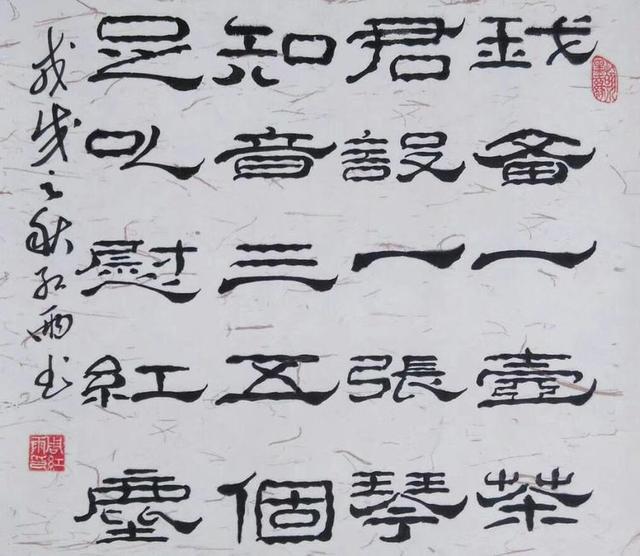 我备一壺茶
君設一張琴
知音三五個
足以慰紅塵
戊戌之秋红雨书